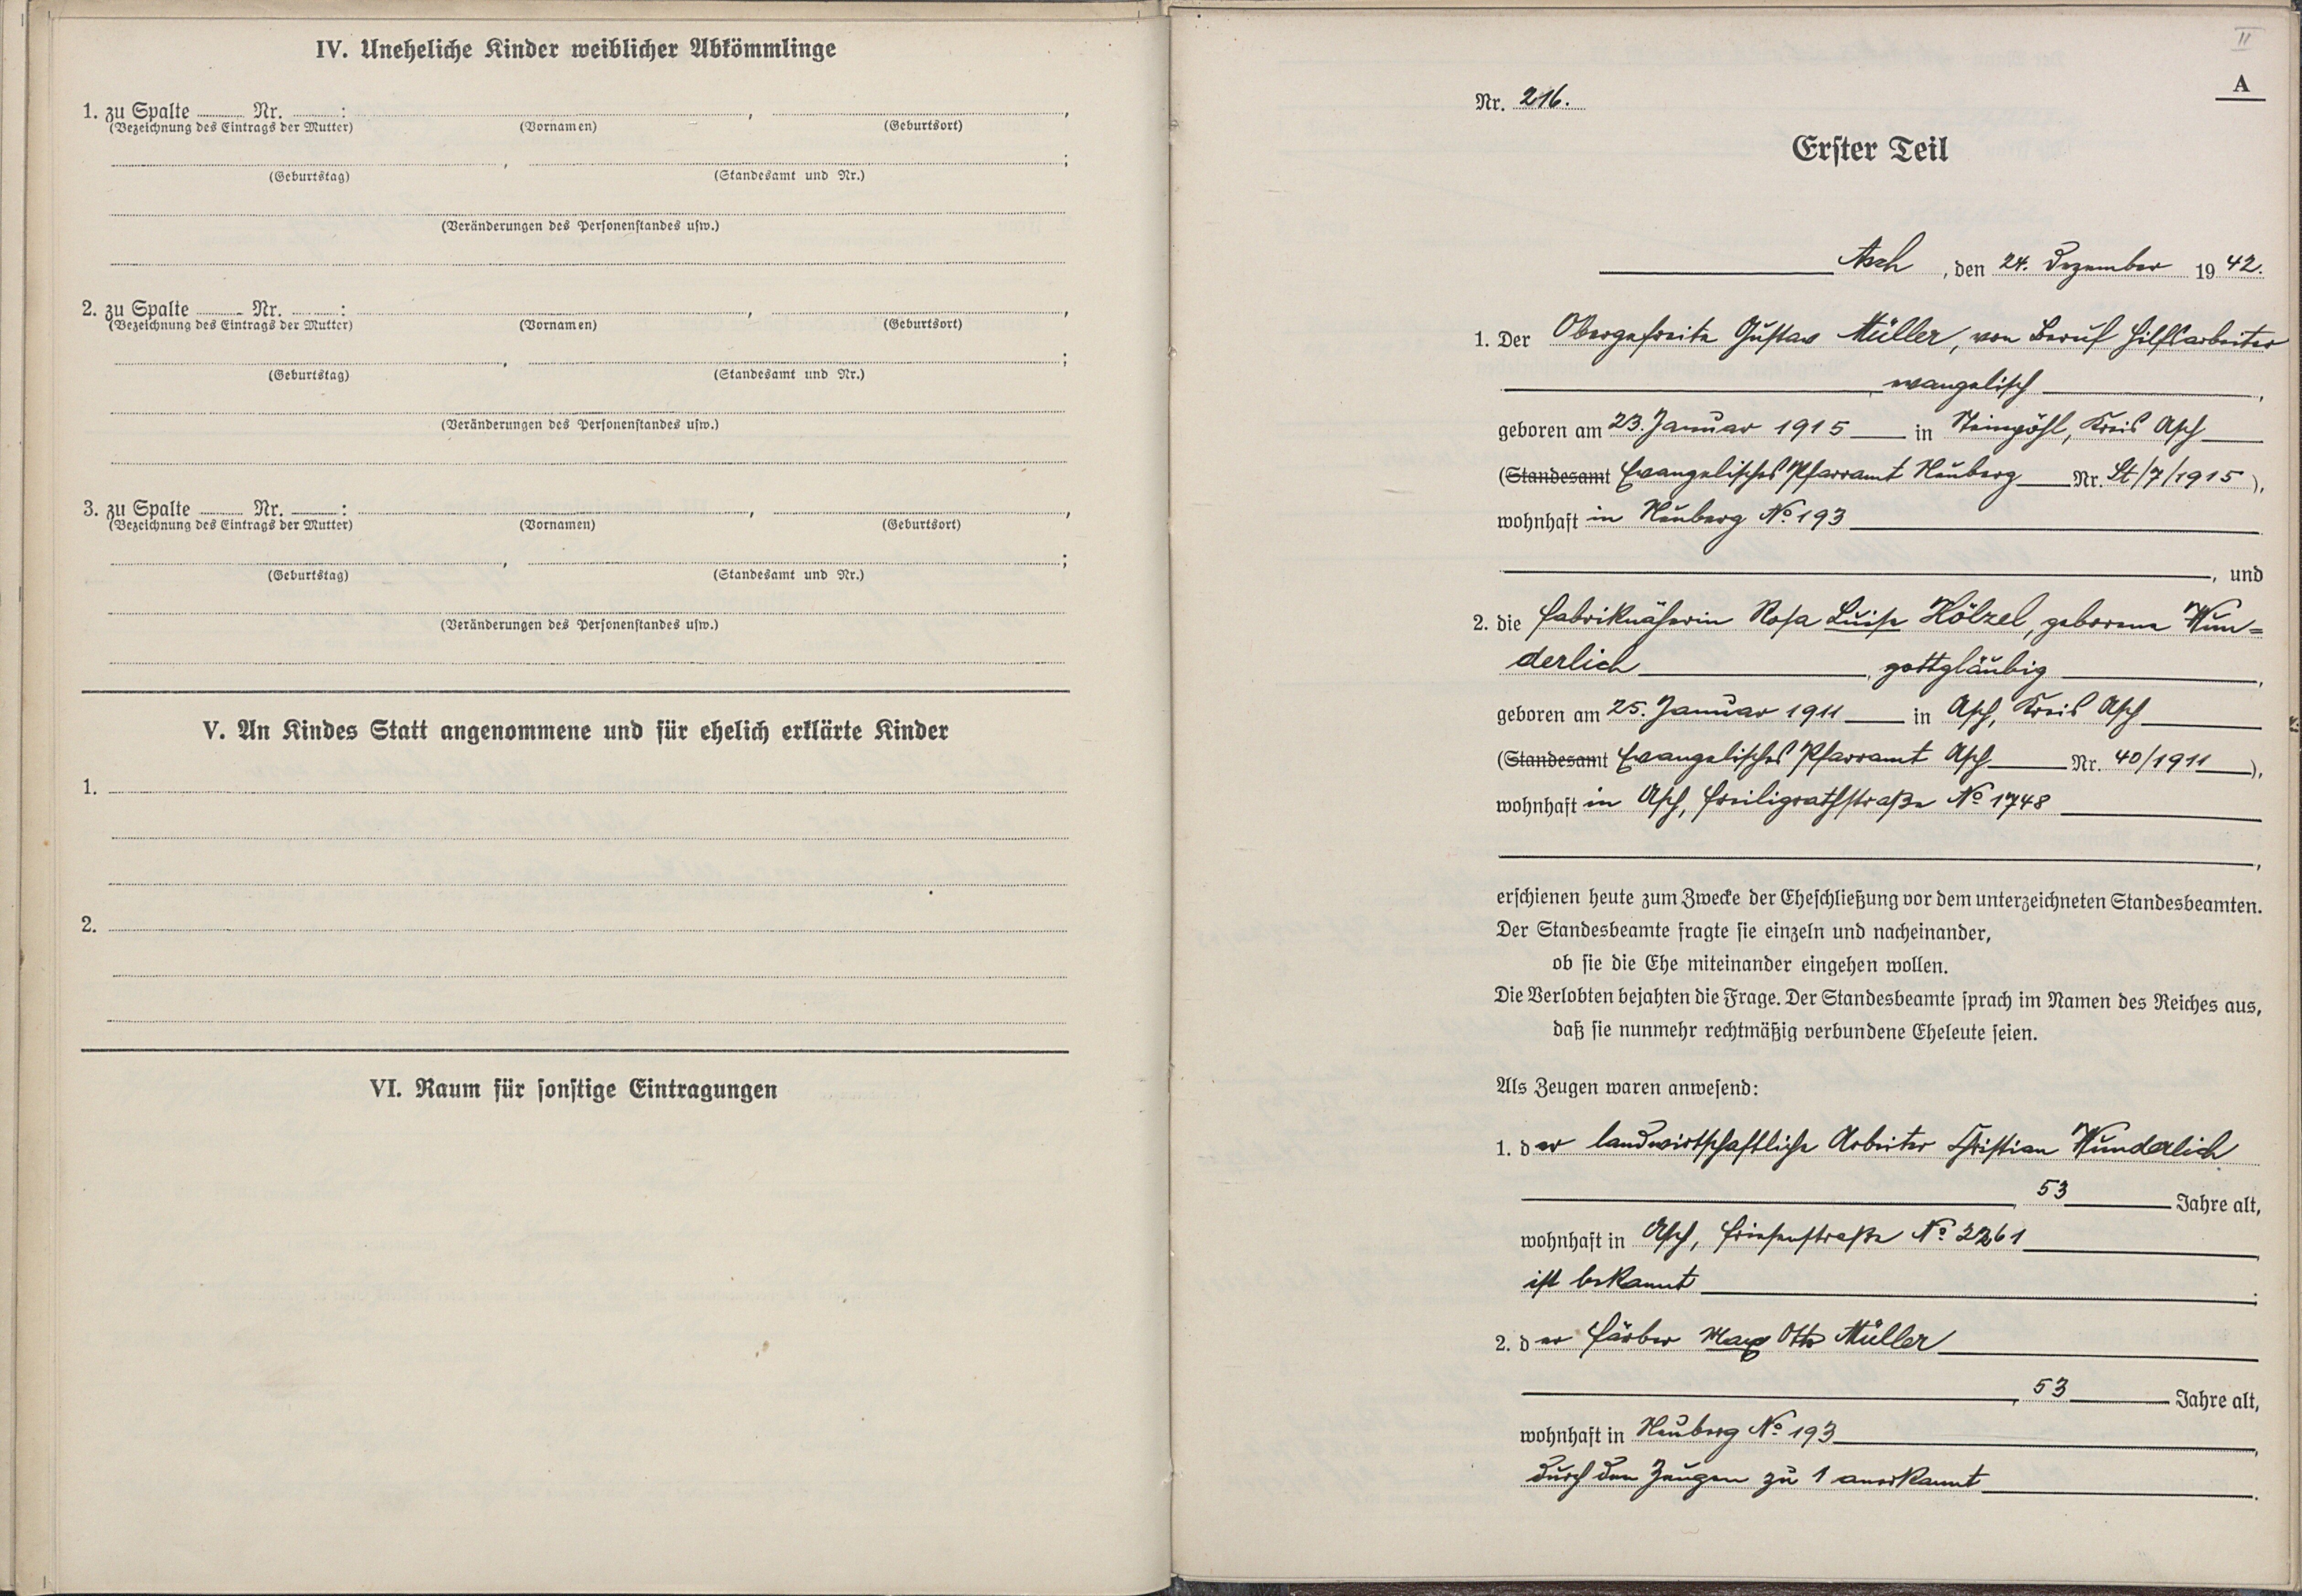 IV. Uneheliche Kinder weiblicher Abkömmlinge
1. zu Spalte ........ Nr. ........ : ........ , ........ ,
(Bezeichnung des Eintrags der Mutter) (Vornamen) (Geburtsort)
........ , ........ ;
(Geburtstag) (Standesamt und Nr.)
(Veränderungen des Personenstandes usw.)
2. zu Spalte ........ Nr. ........ : ........ , ........ ,
(Bezeichnung des Eintrags der Mutter) (Vornamen) (Geburtsort)
........ , ........ ;
(Geburtstag) (Standesamt und Nr.)
(Veränderungen des Personenstandes usw.)
3. zu Spalte ........ Nr. ........ : ........ , ........ ,
(Bezeichnung des Eintrags der Mutter) (Vornamen) (Geburtsort)
........ , ........ ;
(Geburtstag) (Standesamt und Nr.)
(Veränderungen des Personenstandes usw.)
V. An Kindes Statt angenommene und für ehelich erklärte Kinder
1.
2.
VI. Raum für sonstige Eintragungen
II
A
Nr. 216.
Erster Teil
Asch, den 24. Dezember 1942.
1. Der Obergefreite Gustav Müller, von Beruf Hilfsarbeiter
, evangelisch ,
geboren am 23. Januar 1915 in Steinpöhl, Kreis Asch
(Standesamt Evangelisches Pfarramt Neuberg Nr. St/7/1915),
wohnhaft in Neuberg No 193
, und
2. die Fabriknäherin Rosa Luise Hölzel, geborene Wun=
derlich , gottgläubig ,
geboren am 25. Januar 1911 in Asch, Kreis Asch
(Standesamt Evangelisches Pfarramt Asch Nr. 40/1911 ),
wohnhaft in Asch, Freiligrathstraße No 1748
,
erschienen heute zum Zwecke der Eheschließung vor dem unterzeichneten Standesbeamten.
Der Standesbeamte fragte sie einzeln und nacheinander,
ob sie die Ehe miteinander eingehen wollen.
Die Verlobten bejahten die Frage. Der Standesbeamte sprach im Namen des Reiches aus,
daß sie nunmehr rechtmäßig verbundene Eheleute seien.
Als Zeugen waren anwesend:
1. der landwirtschaftliche Arbeiter Christian Wunderlich
, 53 Jahre alt,
wohnhaft in Asch, Friesenstraße No 2261 ,
ist bekannt ;
2. der Färber Max Otto Müller
, 53 Jahre alt,
wohnhaft in Neuberg No 193 ,
durch den Zeugen zu 1 anerkannt .